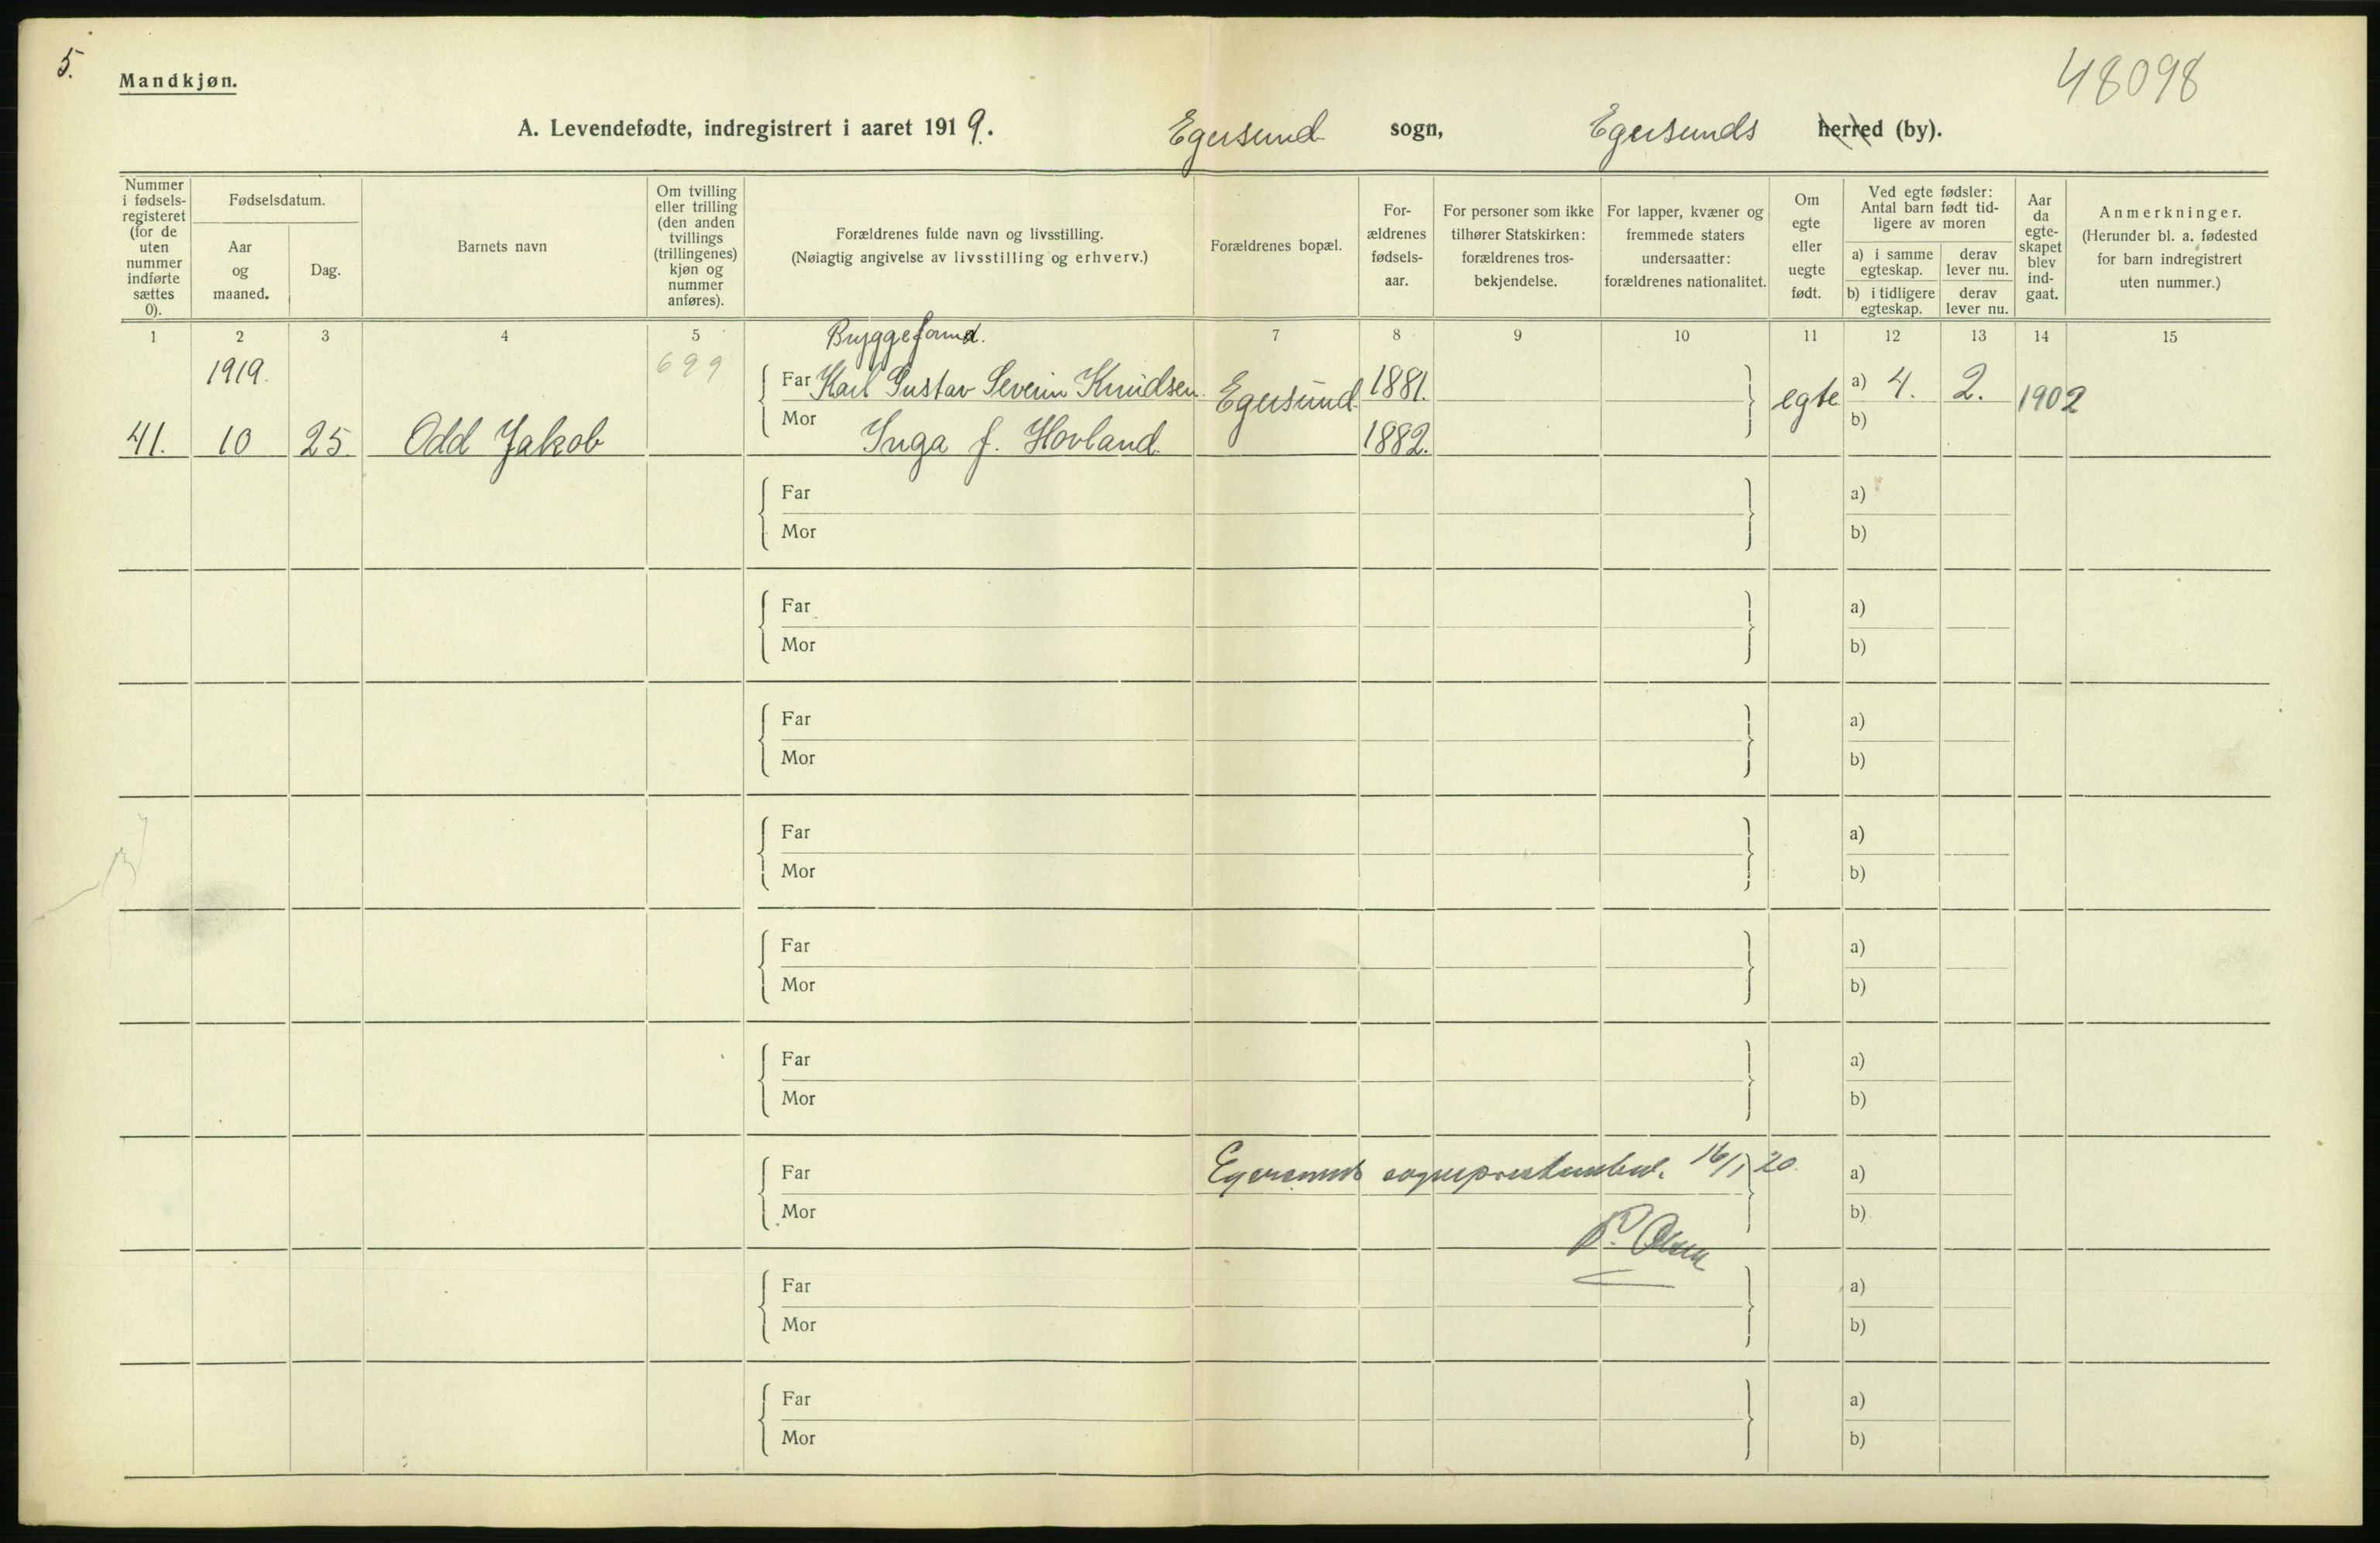 5.
48098
Mandkjøn.
A. Levendefødte, indregistrert i aaret 1919. Egersund sogn, Egersunds herred (by).
Nummer i fødsels-registeret (for de uten nummer indførte sættes 0).
Fødselsdatum.
Aar og maaned.
Dag.
Barnets navn
Om tvilling eller trilling (den anden tvillings (trillingenes) kjøn og nummer anføres).
Forældrenes fulde navn og livsstilling.
(Nøiagtig angivelse av livsstilling og erhverv.)
Forældrenes bopæl.
For-ældrenes fødsels-aar.
For personer som ikke tilhører Statskirken: forældrenes tros-bekjendelse.
For lapper, kvæner og fremmede staters undersaatter: forældrenes nationalitet.
Om egte eller uegte født.
Ved egte fødsler: Antal barn født tid-ligere av moren
a) i samme egteskap.
derav lever nu.
b) i tidligere egteskap.
derav lever nu.
Aar da egte-skapet blev ind-gaat.
Anmerkninger.
(Herunder bl. a. fødested for barn indregistrert uten nummer.)
1 2 3 4 5 7 8 9 10 11 12 13 14 15
Byggeform.
1919. 699 Far Karl Gustav Severin Knudsen Egersund 1881. egte a) 4. 2. 1902
41. 10 25. Odd Jakob Mor Inga J. Hovland 1882. b)
Far a)
Mor b)
Far a)
Mor b)
Far a)
Mor b)
Far a)
Mor b)
Far a)
Mor b)
Far a)
Mor b)
Far Egersunds sogneprestembed. 16/1 20. a)
Mor b)
P. Olsen
Far a)
Mor b)
Far a)
Mor b)